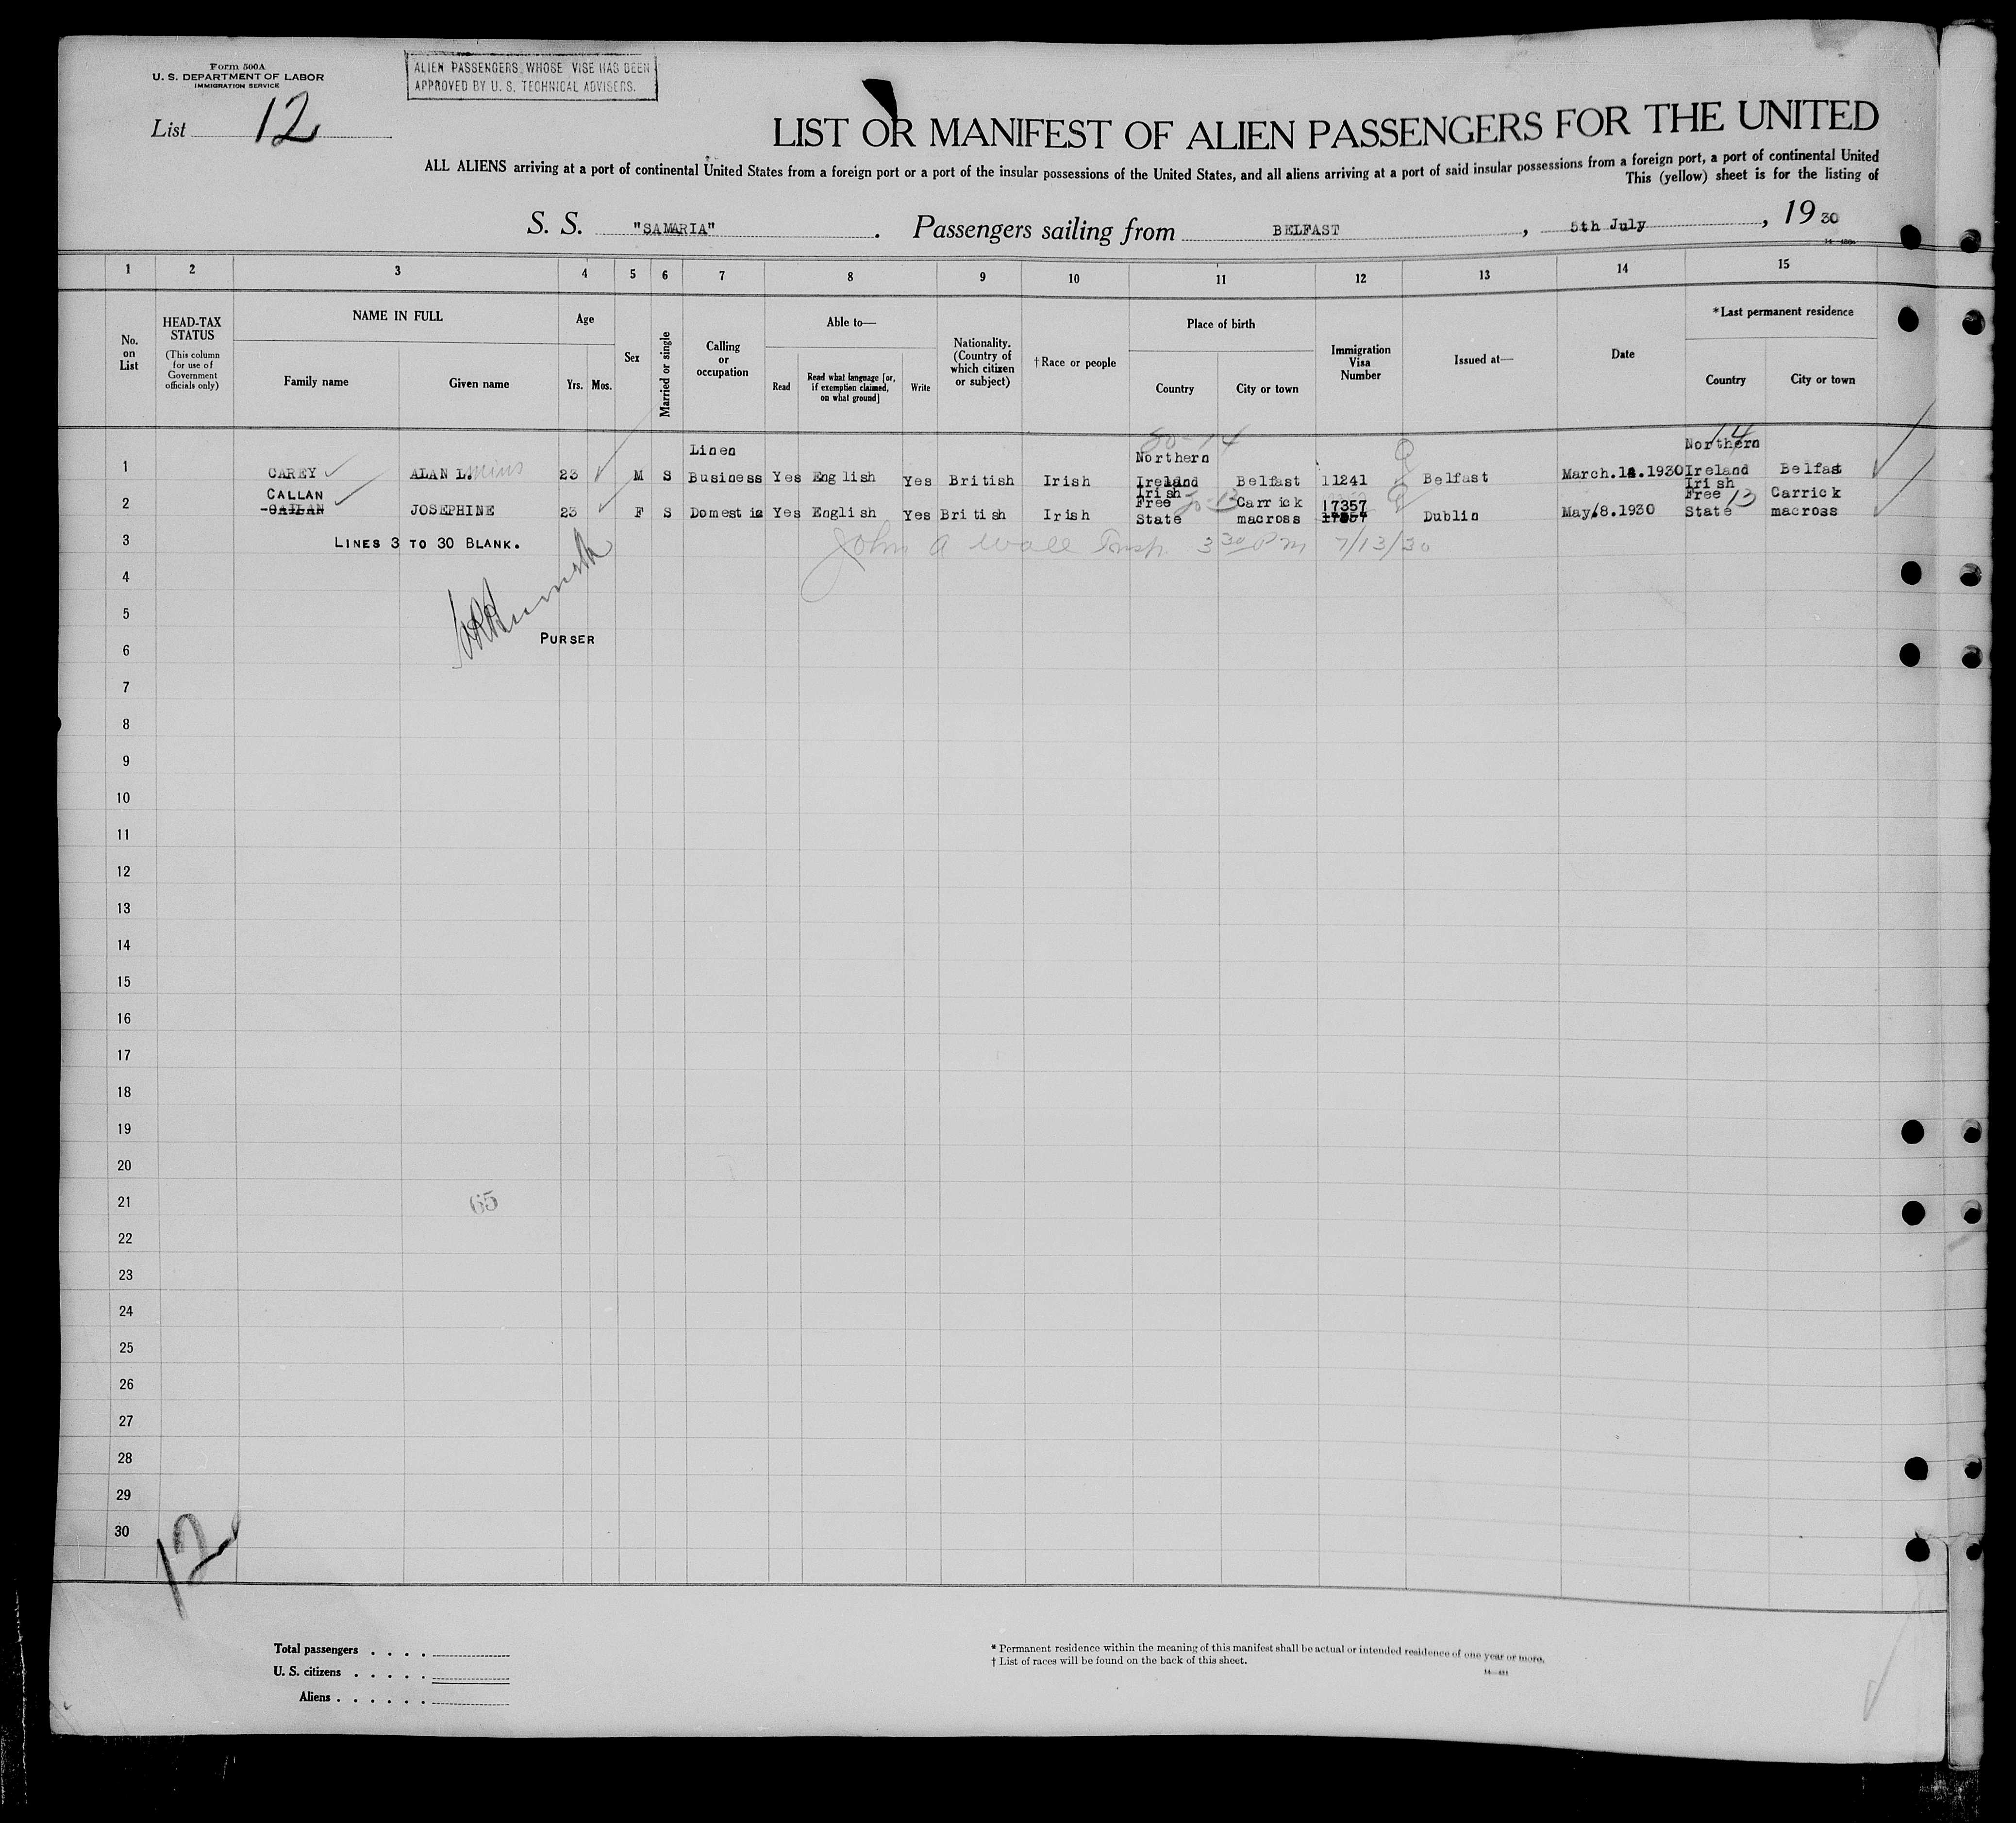 Form 500A
U. S. DEPARTMENT OF LABOR
IMMIGRATION SERVICE
ALIEN PASSENGERS WHOSE VISE HAS BEEN
APPROVED BY U. S. TECHNICAL ADVISERS.
List 12
LIST OR MANIFEST OF ALIEN PASSENGERS FOR THE UNITED
ALL ALIENS arriving at a port of continental United States from a foreign port or a port of the insular possessions of the United States, and all aliens arriving at a port of said insular possessions from a foreign port, a port of continental United
This (yellow) sheet is for the listing of
S. S. "SAMARIA" . Passengers sailing from BELFAST , 5th July , 19 30
1 2 3 4 5 6 7 8 9 10 11 12 13 14 15
No. on List
HEAD-TAX STATUS
(This column for use of Government officials only)
NAME IN FULL
Family name Given name
Age
Yrs. Mos.
Sex
Married or single
Calling or occupation
Able to—
Read
Read what language [or, if exemption claimed, on what ground]
Write
Nationality. (Country of which citizen or subject)
†Race or people
Place of birth
Country City or town
Immigration Visa Number
Issued at—
Date
*Last permanent residence
Country City or town
1 CAREY ALAN L. 23 M S Linen Business Yes English Yes British Irish Northern Ireland Belfast 11241 Belfast March. .1930 Northern Ireland Belfast
14
2 CALLAN JOSEPHINE 23 F S Domestic Yes English Yes British Irish Irish Free State Carrick macross 17357 Dublin May/8.1930 Irish Free State 13 Carrick macross
3 LINES 3 TO 30 BLANK. John A Wall Insp. 3 30 Pm 7/13/30
4
5
PURSER
6
7
8
9
10
11
12
13
14
15
16
17
18
19
20
21
65
22
23
24
25
26
27
28
29
30
12
Total passengers . . . .
U. S. citizens . . . . .
Aliens . . . . . .
* Permanent residence within the meaning of this manifest shall be actual or intended residence of one year or more.
† List of races will be found on the back of this sheet.